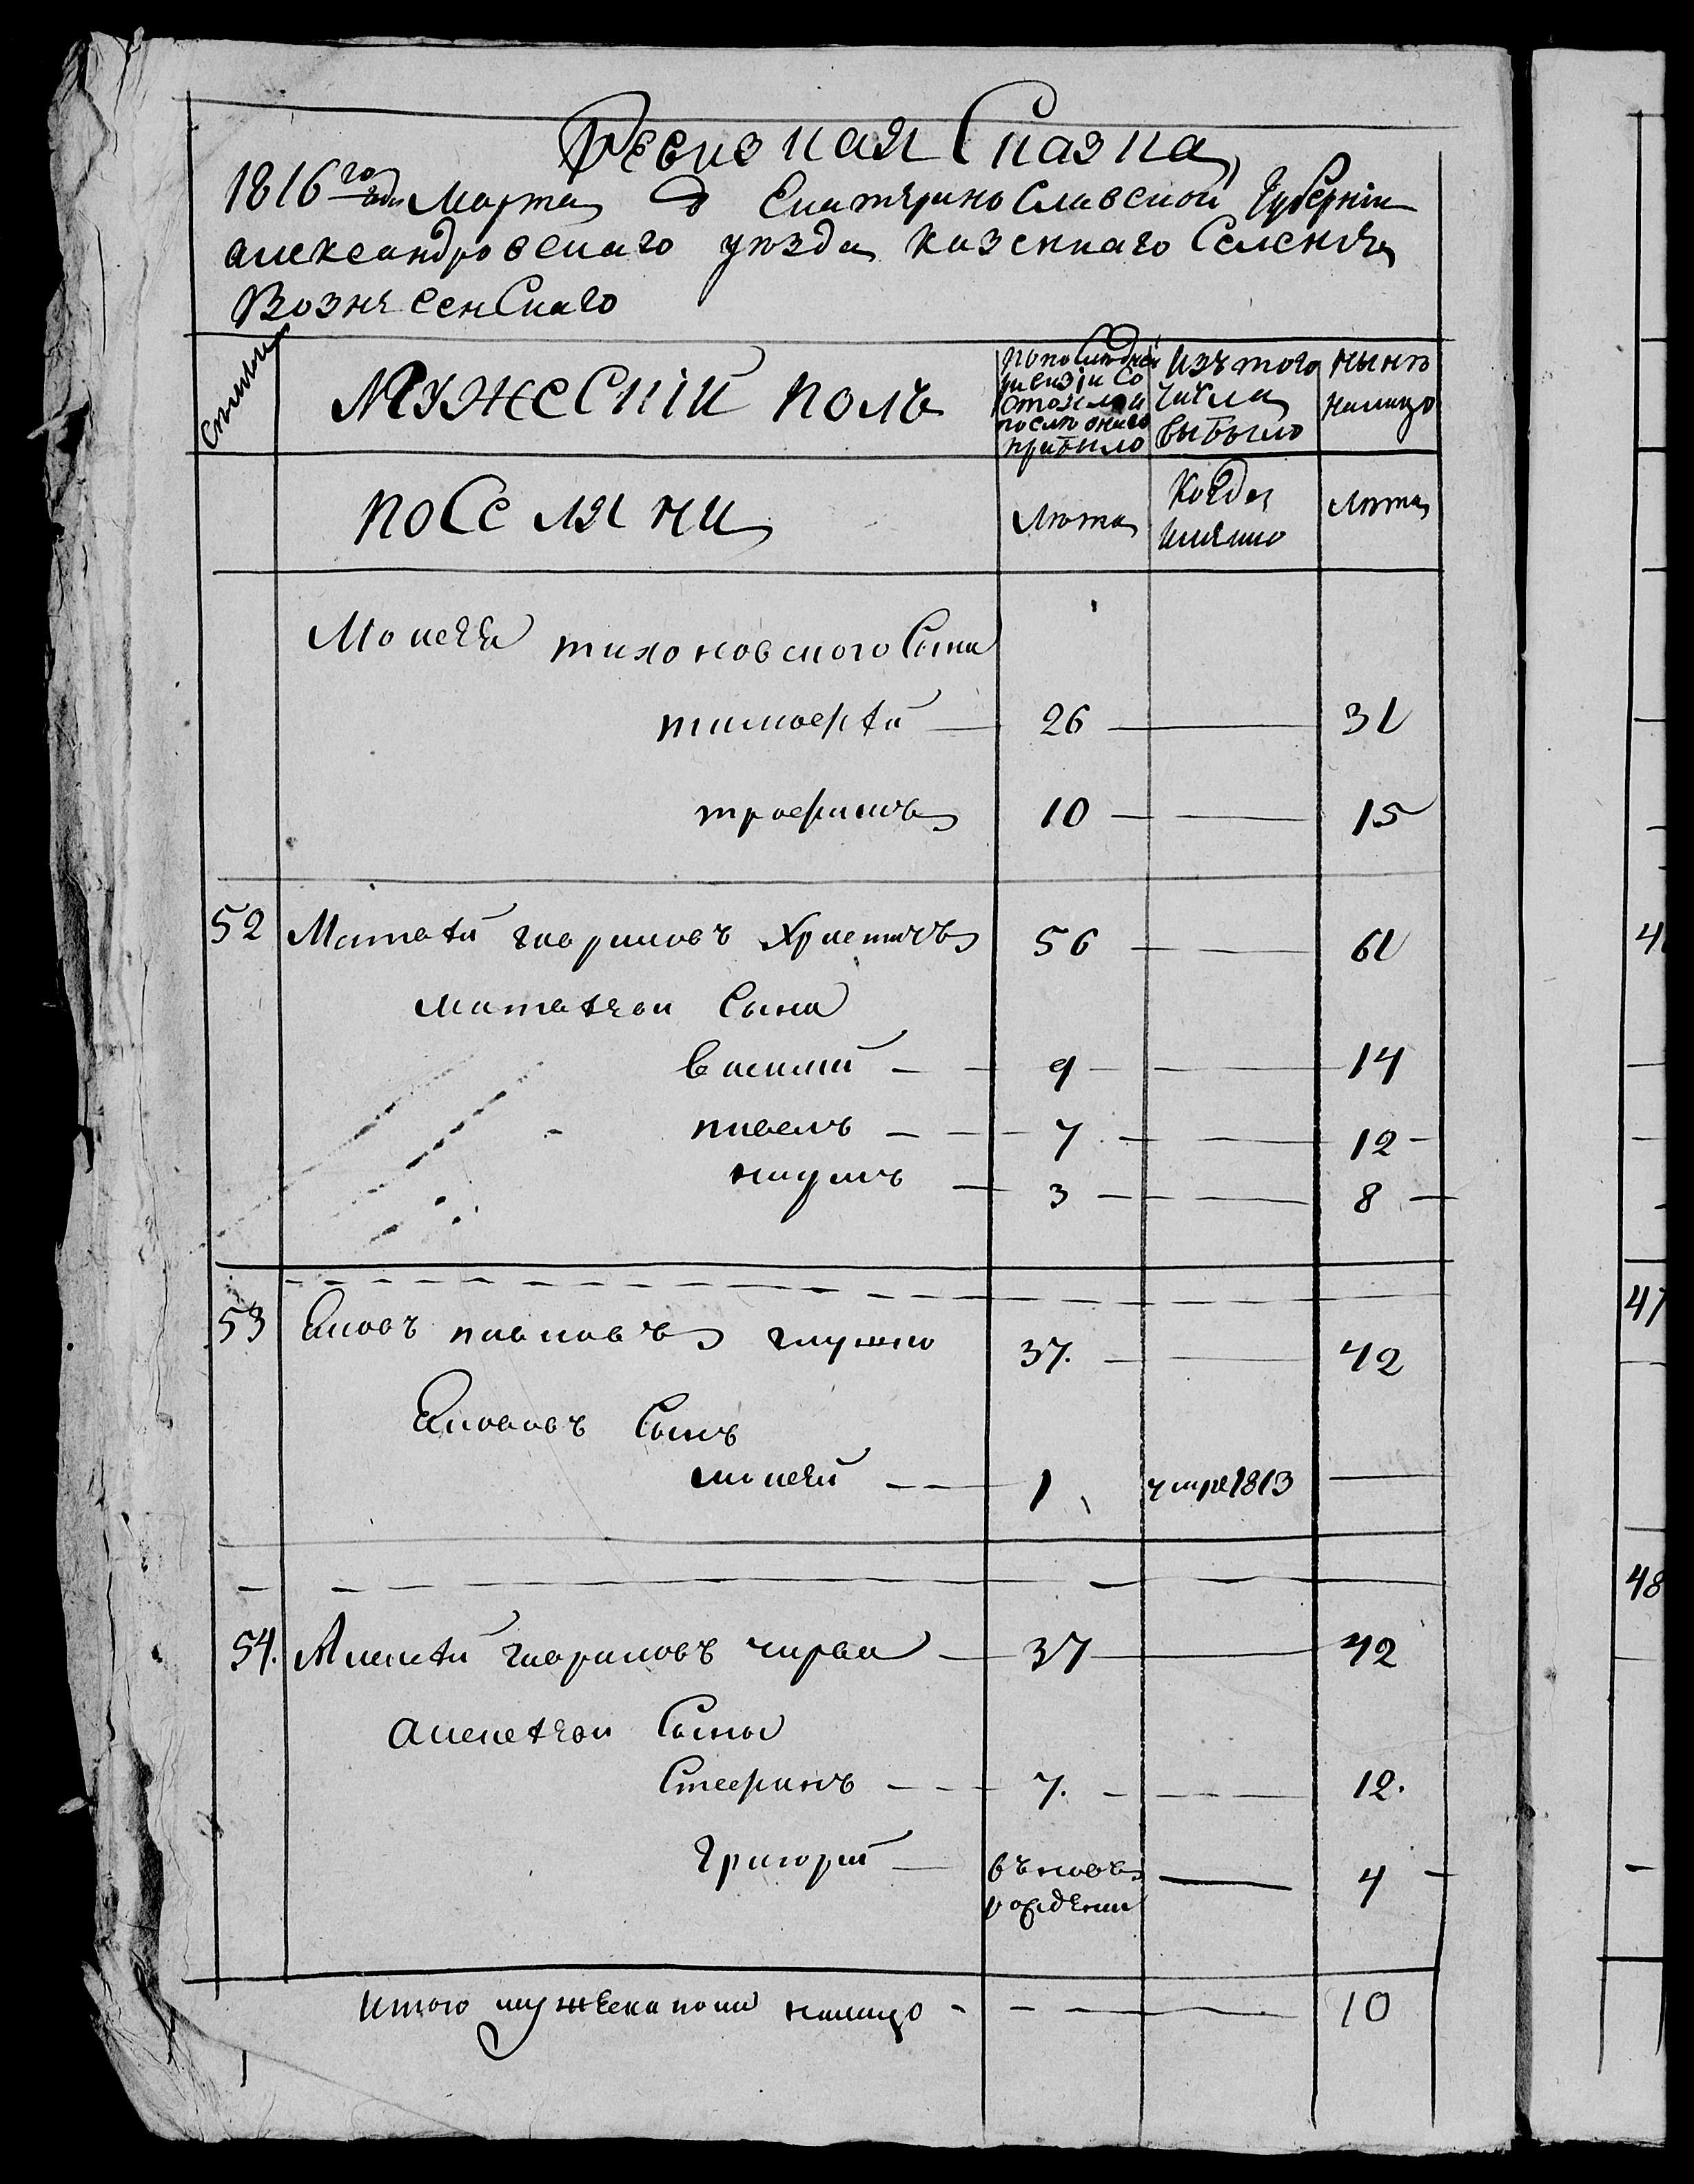 Ревизная Сказка
1816го года Марта Д Екатеринославской Губернии
александровскаго уезда казеннаго Селения
Вознесенскаго
Семьи
Мужескій полъ
по последней ревизіи состояло и после онаго прибыло
Изъ того числа выбыло
ныне налицо
поселяни
лета
Когда имянно
лета
Мосея тихоновского Сына
тимофей — 26 — 31
трофимъ 10 — 15
52 Матвей гавриловъ Христичъ 56 — 61
матвеевы Сына
василий — 9 — 14
павелъ — 7 — 12 —
наумъ — 3 — 8 —
53 Яковъ павловъ глушко 37. — 42
Яковов Сынъ
мосей — 1 умре 1813 —
54. Алексей гавриловъ чирва — 37 — 42
алексеевы Сыны
Стефанъ — 7. — 12.
Григорий — въновь рожденъ — 4 —
Итого мужеска пола налицо — 10
46
47
48